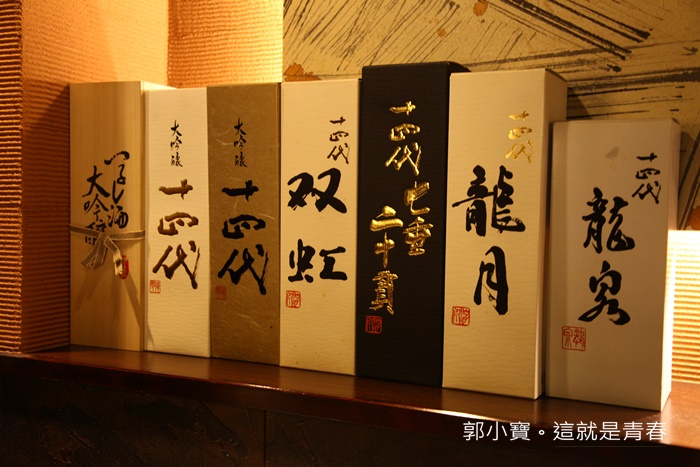 大吟醸
大吟醸
十四代
大吟醸
十四代
十四代
双虹
十四代
七垂
二十貫
十四代
龍月
十四代
龍泉
郭小寶。這就是青春